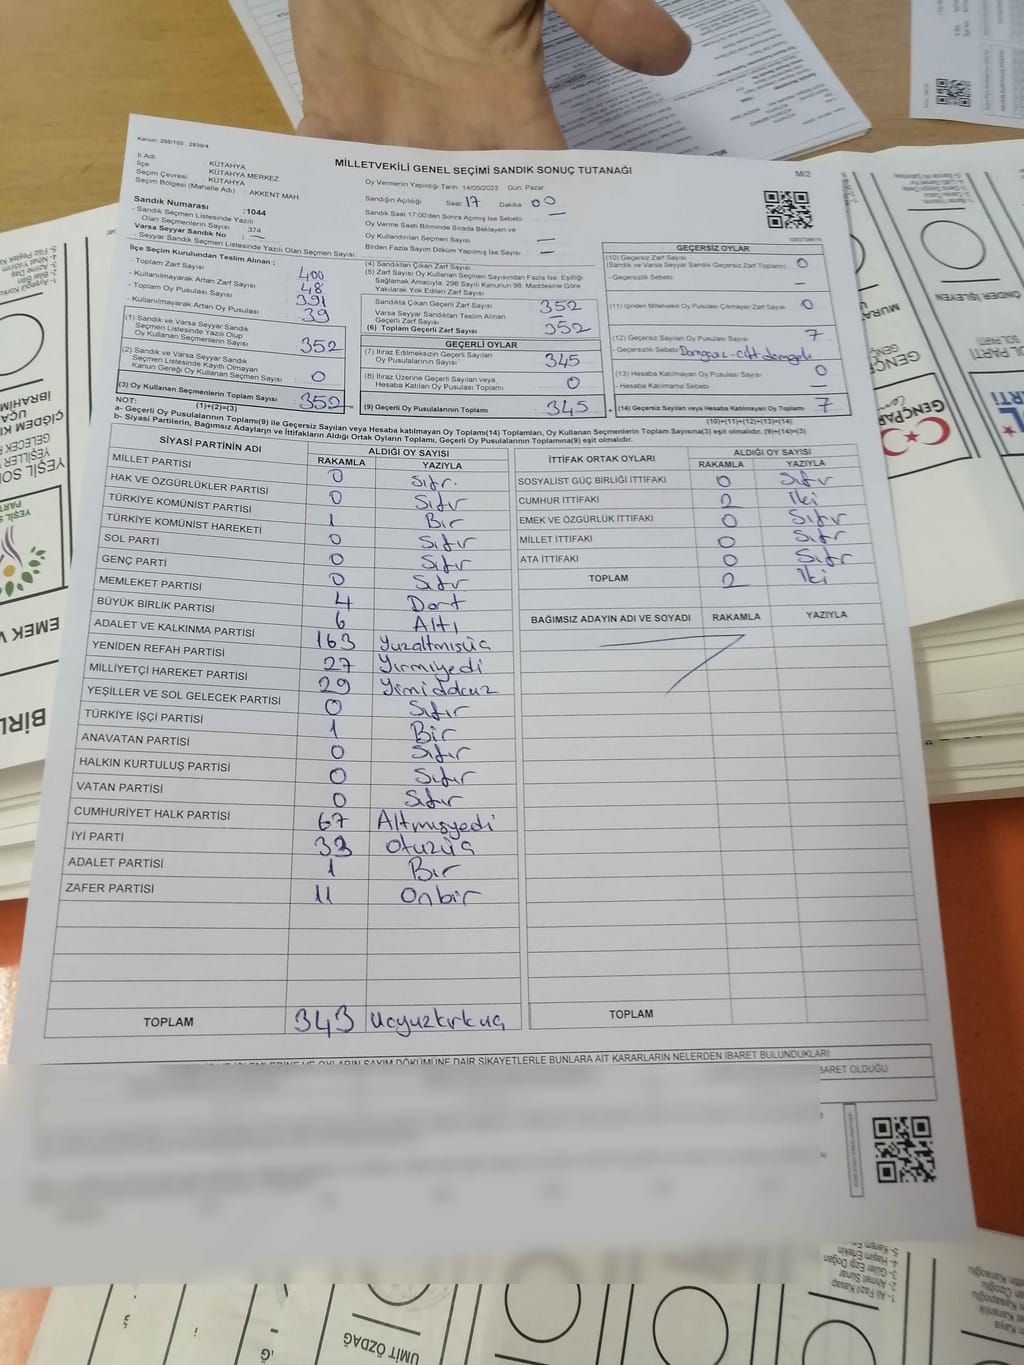 Kanun: 298/105 2839/4
MİLLETVEKİLİ GENEL SEÇİMİ SANDIK SONUÇ TUTANAĞI
M/2
İl Adı : KÜTAHYA
İlçe : KÜTAHYA MERKEZ
Seçim Çevresi : KÜTAHYA
Seçim Bölgesi (Mahalle Adı) : AKKENT MAH.
Sandık Numarası :1044
- Sandık Seçmen Listesinde Yazılı
Olan Seçmenlerin Sayısı 374
Varsa Seyyar Sandık No : —
- Seyyar Sandık Seçmen Listesinde Yazılı Olan Seçmen Sayısı:
Oy Vermenin Yapıldığı Tarih: 14/05/2023 Gün: Pazar
Sandığın Açıldığı Saat: 17 Dakika 00
Sandık Saat 17:00'den Sonra Açılmış İse Sebebi —
Oy Verme Saati Bitiminde Sırada Bekleyen ve
Oy Kullandırılan Seçmen Sayısı —
Birden Fazla Sayım Döküm Yapılmış İse Sayısı —
İlçe Seçim Kurulundan Teslim Alınan ;
- Toplam Zarf Sayısı 400
- Kullanılmayarak Artan Zarf Sayısı 48
- Toplam Oy Pusulası Sayısı 391
- Kullanılmayarak Artan Oy Pusulası 39
(1) Sandık ve Varsa Seyyar Sandık
Seçmen Listesinde Yazılı Olup
Oy Kullanan Seçmenlerin Sayısı 352
(2) Sandık ve Varsa Seyyar Sandık
Seçmen Listesinde Kayıtlı Olmayan
Kanun Gereği Oy Kullanan Seçmen Sayısı 0
(3) Oy Kullanan Seçmenlerin Toplam Sayısı 352
(1)+(2)=(3)
(4) Sandıktan Çıkan Zarf Sayısı
(5) Zarf Sayısı Oy Kullanan Seçmen Sayısından Fazla İse; Eşitliği
Sağlamak Amacıyla; 298 Sayılı Kanunun 98. Maddesine Göre
Yakılarak Yok Edilen Zarf Sayısı
Sandıkta Çıkan Geçerli Zarf Sayısı 352
Varsa Seyyar Sandıktan Teslim Alınan
Geçerli Zarf Sayısı —
(6) Toplam Geçerli Zarf Sayısı 352
GEÇERLİ OYLAR
(7) İtiraz Edilmeksizin Geçerli Sayılan
Oy Pusulalarının Sayısı 345
(8) İtiraz Üzerine Geçerli Sayılan veya
Hesaba Katılan Oy Pusulası Toplamı 0
(9) Geçerli Oy Pusulalarının Toplamı 345
GEÇERSİZ OYLAR
(10) Geçersiz Zarf Sayısı
(Sandık ve Varsa Seyyar Sandık Geçersiz Zarf Toplamı) 0
- Geçersizlik Sebebi —
(11) İçinden Milletvekili Oy Pusulası Çıkmayan Zarf Sayısı 0
(12) Geçersiz Sayılan Oy Pusulası Sayısı 7
- Geçersizlik Sebebi
(13) Hesaba Katılmayan Oy Pusulası Sayısı 0
- Hesaba Katılmama Sebebi —
(14) Geçersiz Sayılan veya Hesaba Katılmayan Oy Toplamı 7
(10)+(11)+(12)+(13)=(14)
NOT:
a- Geçerli Oy Pusulalarının Toplamı(9) ile Geçersiz Sayılan veya Hesaba katılmayan Oy Toplamı(14) Toplamları, Oy Kullanan Seçmenlerin Toplam Sayısına(3) eşit olmalıdır. (9)+(14)=(3)
b- Siyasi Partilerin, Bağımsız Adayların ve İttifakların Aldığı Ortak Oyların Toplamı, Geçerli Oy Pusulalarının Toplamına(9) eşit olmalıdır.
SİYASİ PARTİNİN ADI ALDIĞI OY SAYISI
RAKAMLA YAZIYLA
MİLLET PARTİSİ 0 Sıfır.
HAK VE ÖZGÜRLÜKLER PARTİSİ 0 Sıfır
TÜRKİYE KOMÜNİST PARTİSİ 1 Bir
TÜRKİYE KOMÜNİST HAREKETİ 0 Sıfır
SOL PARTİ 0 Sıfır
GENÇ PARTİ 0 Sıfır
MEMLEKET PARTİSİ 4 Dört
BÜYÜK BİRLİK PARTİSİ 6 Altı
ADALET VE KALKINMA PARTİSİ 163 Yüzaltmışüç
YENİDEN REFAH PARTİSİ 27 Yirmiyedi
MİLLİYETÇİ HAREKET PARTİSİ 29 Yimidokuz
YEŞİLLER VE SOL GELECEK PARTİSİ 0 Sıfır
TÜRKİYE İŞÇİ PARTİSİ 1 Bir
ANAVATAN PARTİSİ 0 Sıfır
HALKIN KURTULUŞ PARTİSİ 0 Sıfır
VATAN PARTİSİ 0 Sıfır
CUMHURİYET HALK PARTİSİ 67 Altmışyedi
İYİ PARTİ 33 Otuzüç
ADALET PARTİSİ 1 Bir
ZAFER PARTİSİ 11 Onbir
TOPLAM 343 Üçyüzkırküç
İTTİFAK ORTAK OYLARI ALDIĞI OY SAYISI
RAKAMLA YAZIYLA
SOSYALİST GÜÇ BİRLİĞİ İTTİFAKI 0 Sıfır
CUMHUR İTTİFAKI 2 İki
EMEK VE ÖZGÜRLÜK İTTİFAKI 0 Sıfır
MİLLET İTTİFAKI 0 Sıfır
ATA İTTİFAKI 0 Sıfır
TOPLAM 2 İki
BAĞIMSIZ ADAYIN ADI VE SOYADI RAKAMLA YAZIYLA
TOPLAM
OYLARIN SAYIM DÖKÜMÜNE DAİR ŞİKAYETLERLE BUNLARA AİT KARARLARIN NELERDEN İBARET BULUNDUKLARI
BARET OLDUĞU
YEŞİL SOL
PARTİ
EMEK V
BİRL
ÖNDER İŞLEYEN
GENÇPAR
ÜMİT ÖZDAĞ
1- Ali Fazıl Kasap
2- Ahmet Sunar
3- Güler Ezgi Doğan